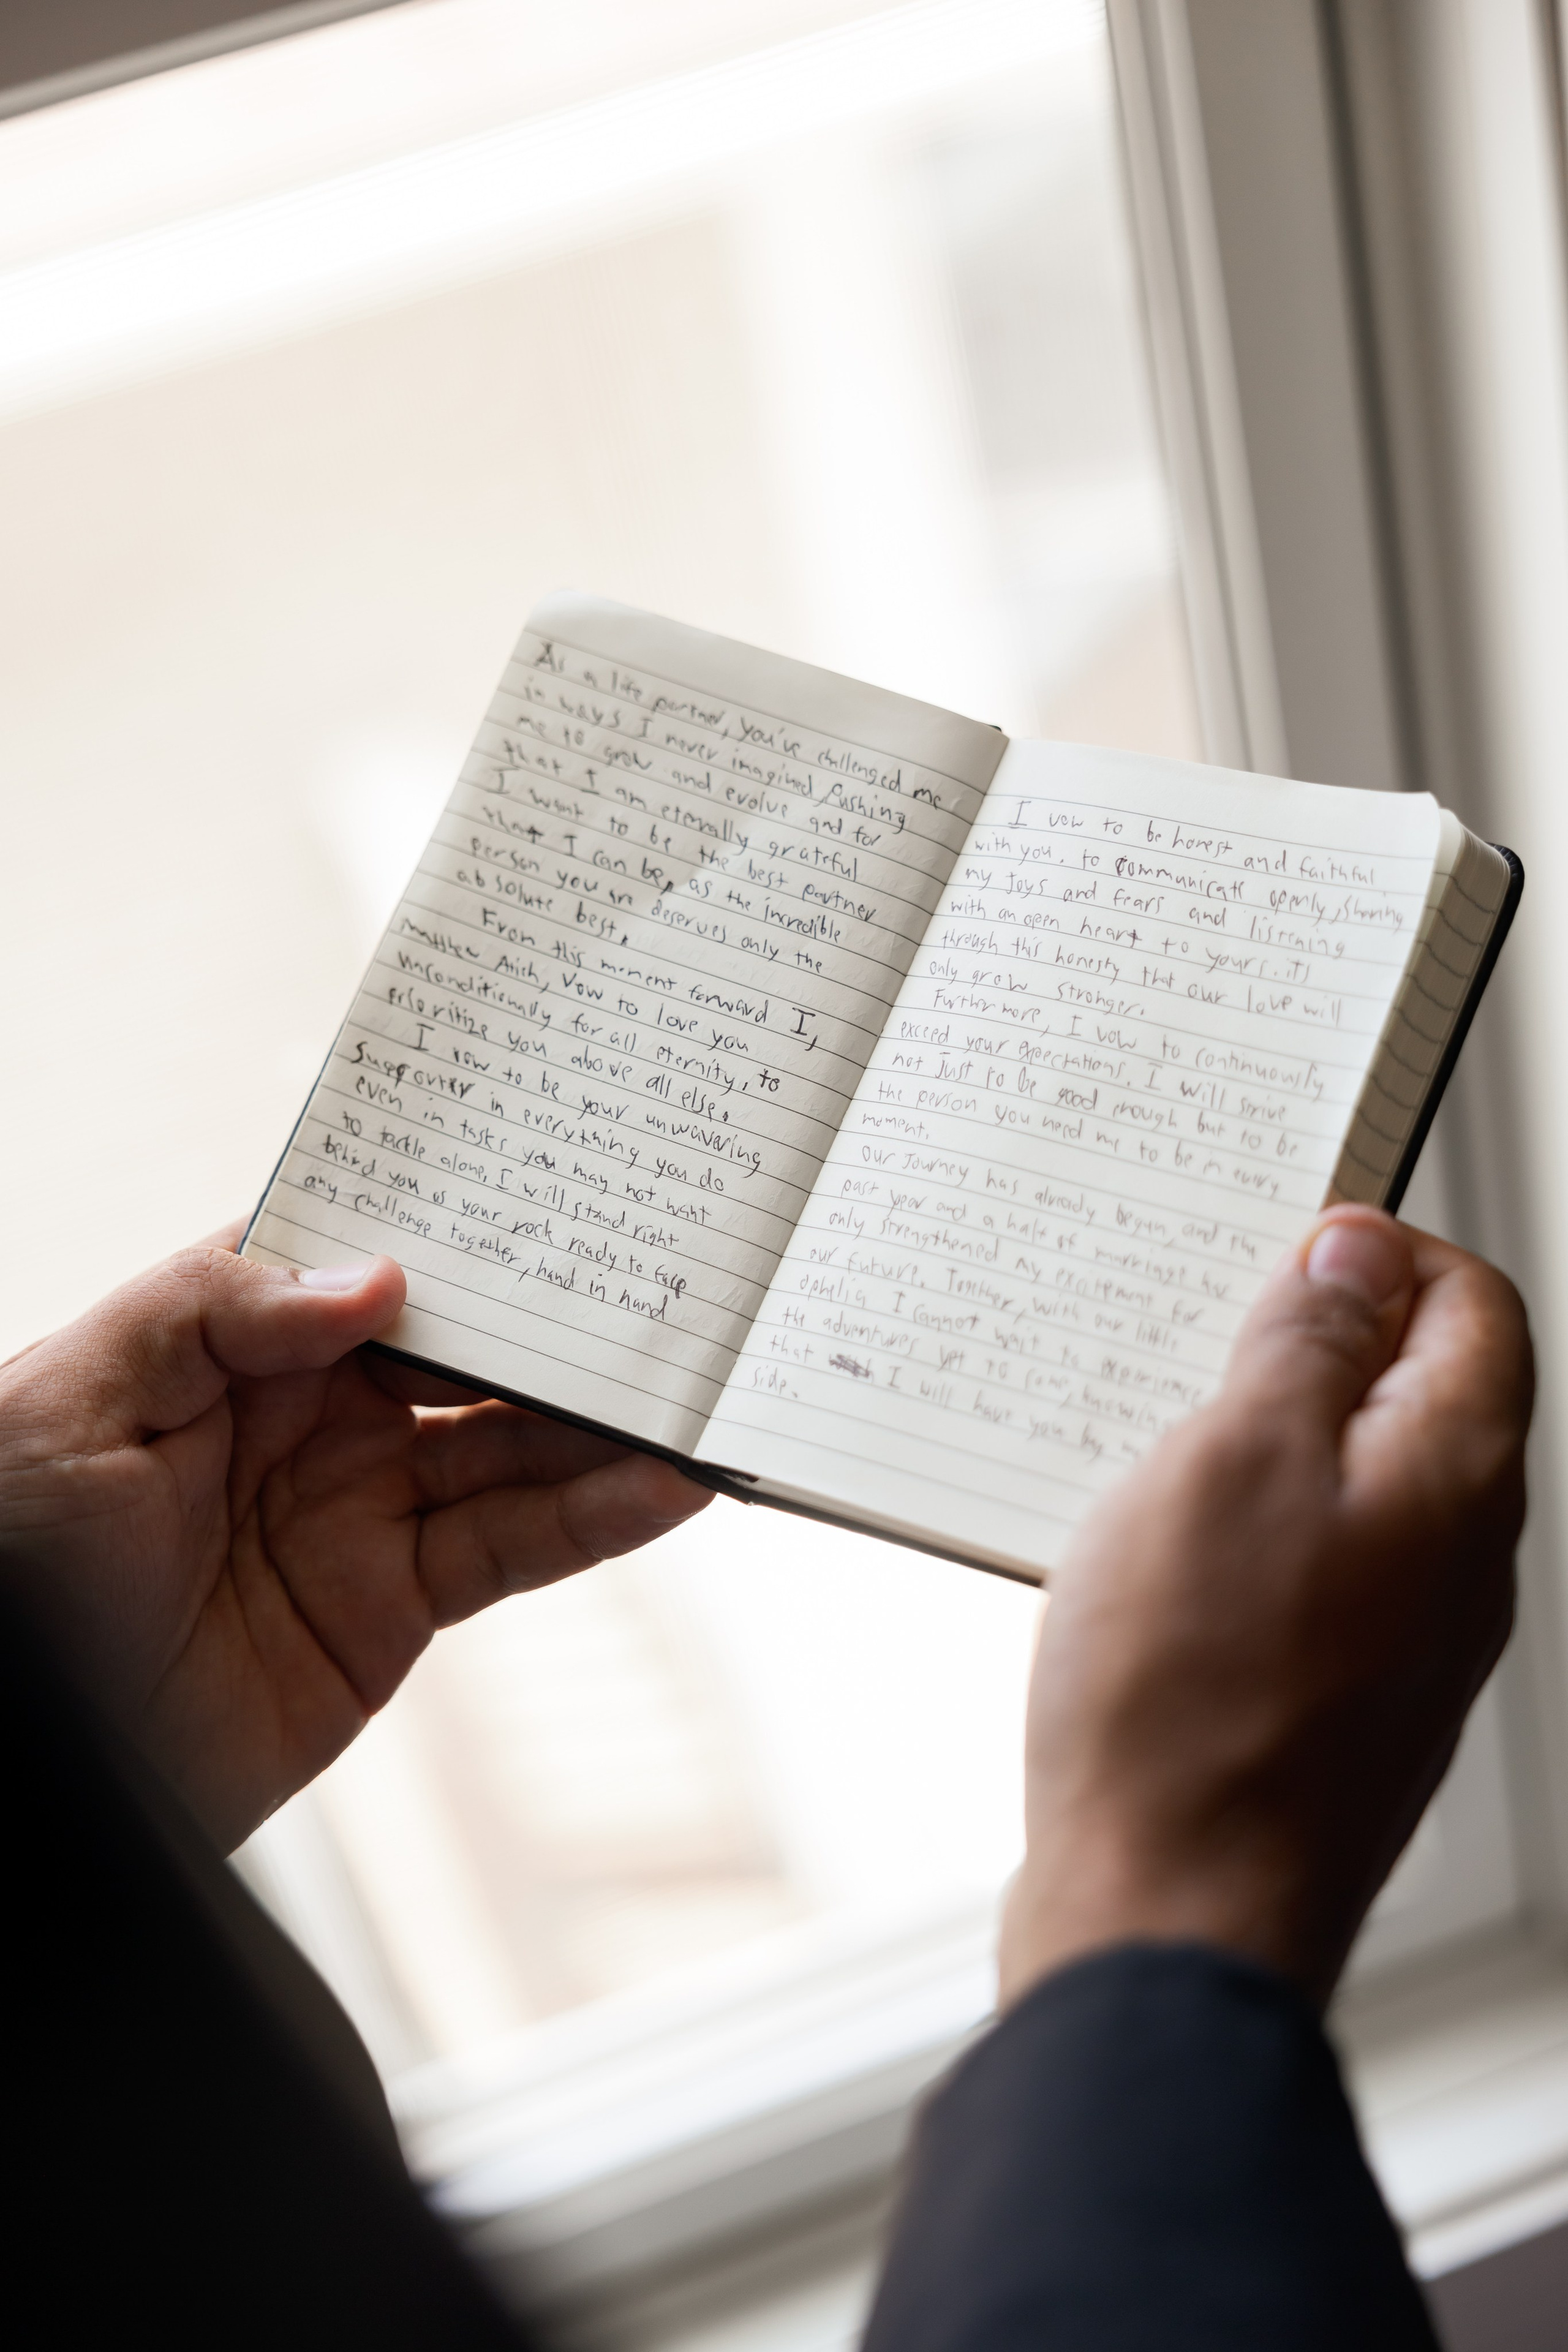 As a life partner, you've challenged me
in ways I never imagined, pushing
me to grow and evolve and for
that I am eternally grateful
I want to be the best partner
that I can be, as the incredible
person you are deserves only the
absolute best.
From this moment forward I,
Matthew, vow to love you
unconditionally for all eternity, to
prioritize you above all else.
I vow to be your unwavering
supporter in everything you do
even in tasks you may not want
to tackle alone, I will stand right
behind you as your rock ready to face
any challenge together, hand in hand
I vow to be honest and faithful
with you, to communicate openly, sharing
my joys and fears and listening
with an open heart to yours. its
through this honesty that our love will
only grow stronger.
Furthermore, I vow to continuously
exceed your expectations. I will strive
not just to be good enough but to be
the person you need me to be in every
moment.
our journey has already begun, and the
past year and a half of marriage has
only strengthened my excitement for
our future. Together, with our little
ophelia I cannot wait to experience
the adventures yet to come, knowing
that I will have you by my
side.